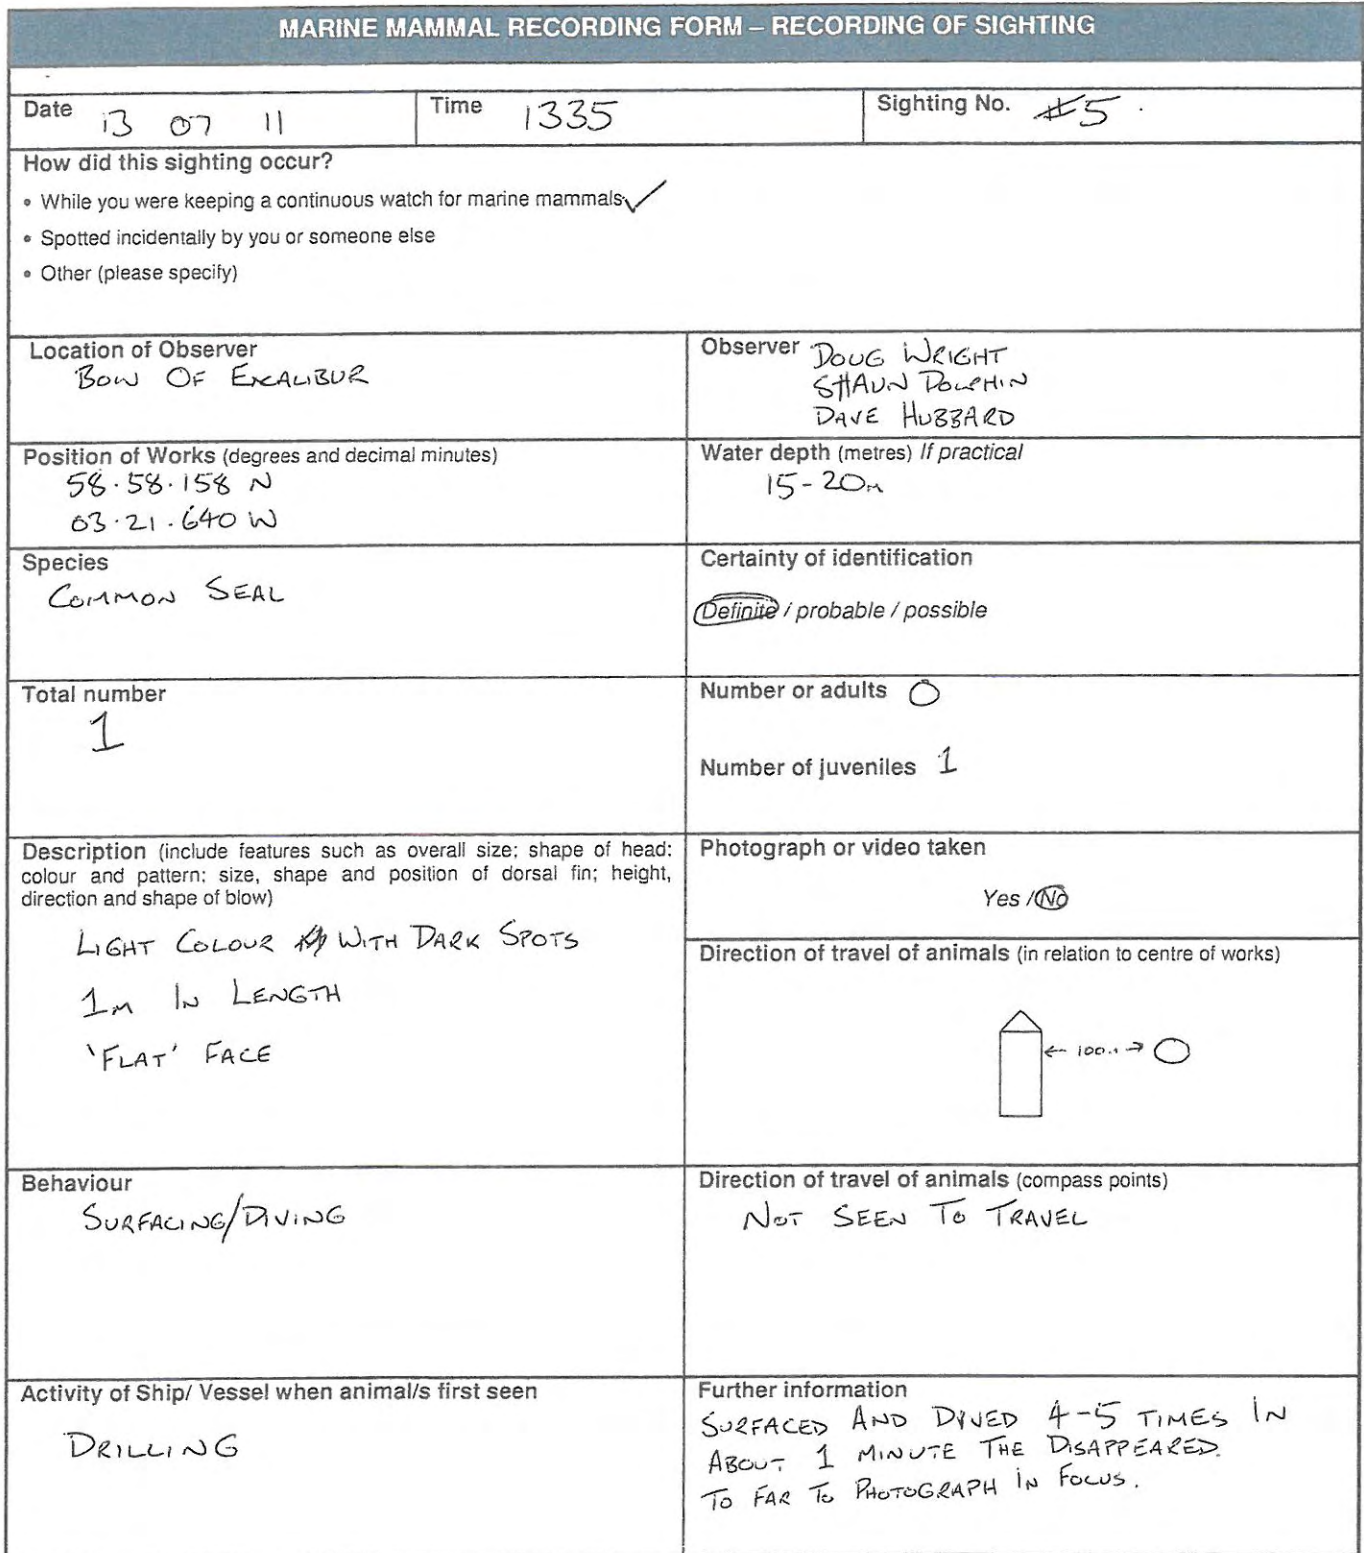 MARINE MAMMAL RECORDING FORM – RECORDING OF SIGHTING
Date 13 07 11
Time 1335
Sighting No. #5.
How did this sighting occur?
• While you were keeping a continuous watch for marine mammals ✓
• Spotted incidentally by you or someone else
• Other (please specify)
Location of Observer
BOW OF EXCALIBUR
Observer DOUG WRIGHT
SHAUN DOLPHIN
DAVE HUBBARD
Position of Works (degrees and decimal minutes)
58.58.158 N
03.21.640 W
Water depth (metres) If practical
15-20m
Species
COMMON SEAL
Certainty of identification
Definite / probable / possible
Total number
1
Number or adults 0
Number of juveniles 1
Description (include features such as overall size; shape of head; colour and pattern; size, shape and position of dorsal fin; height, direction and shape of blow)
LIGHT COLOUR WITH DARK SPOTS
1m IN LENGTH
'FLAT' FACE
Photograph or video taken
Yes / No
Direction of travel of animals (in relation to centre of works)
← 100m →
Behaviour
SURFACING/DIVING
Direction of travel of animals (compass points)
NOT SEEN TO TRAVEL
Activity of Ship/ Vessel when animal/s first seen
DRILLING
Further information
SURFACED AND DIVED 4-5 TIMES IN
ABOUT 1 MINUTE THE DISAPPEARED.
TO FAR TO PHOTOGRAPH IN FOCUS.